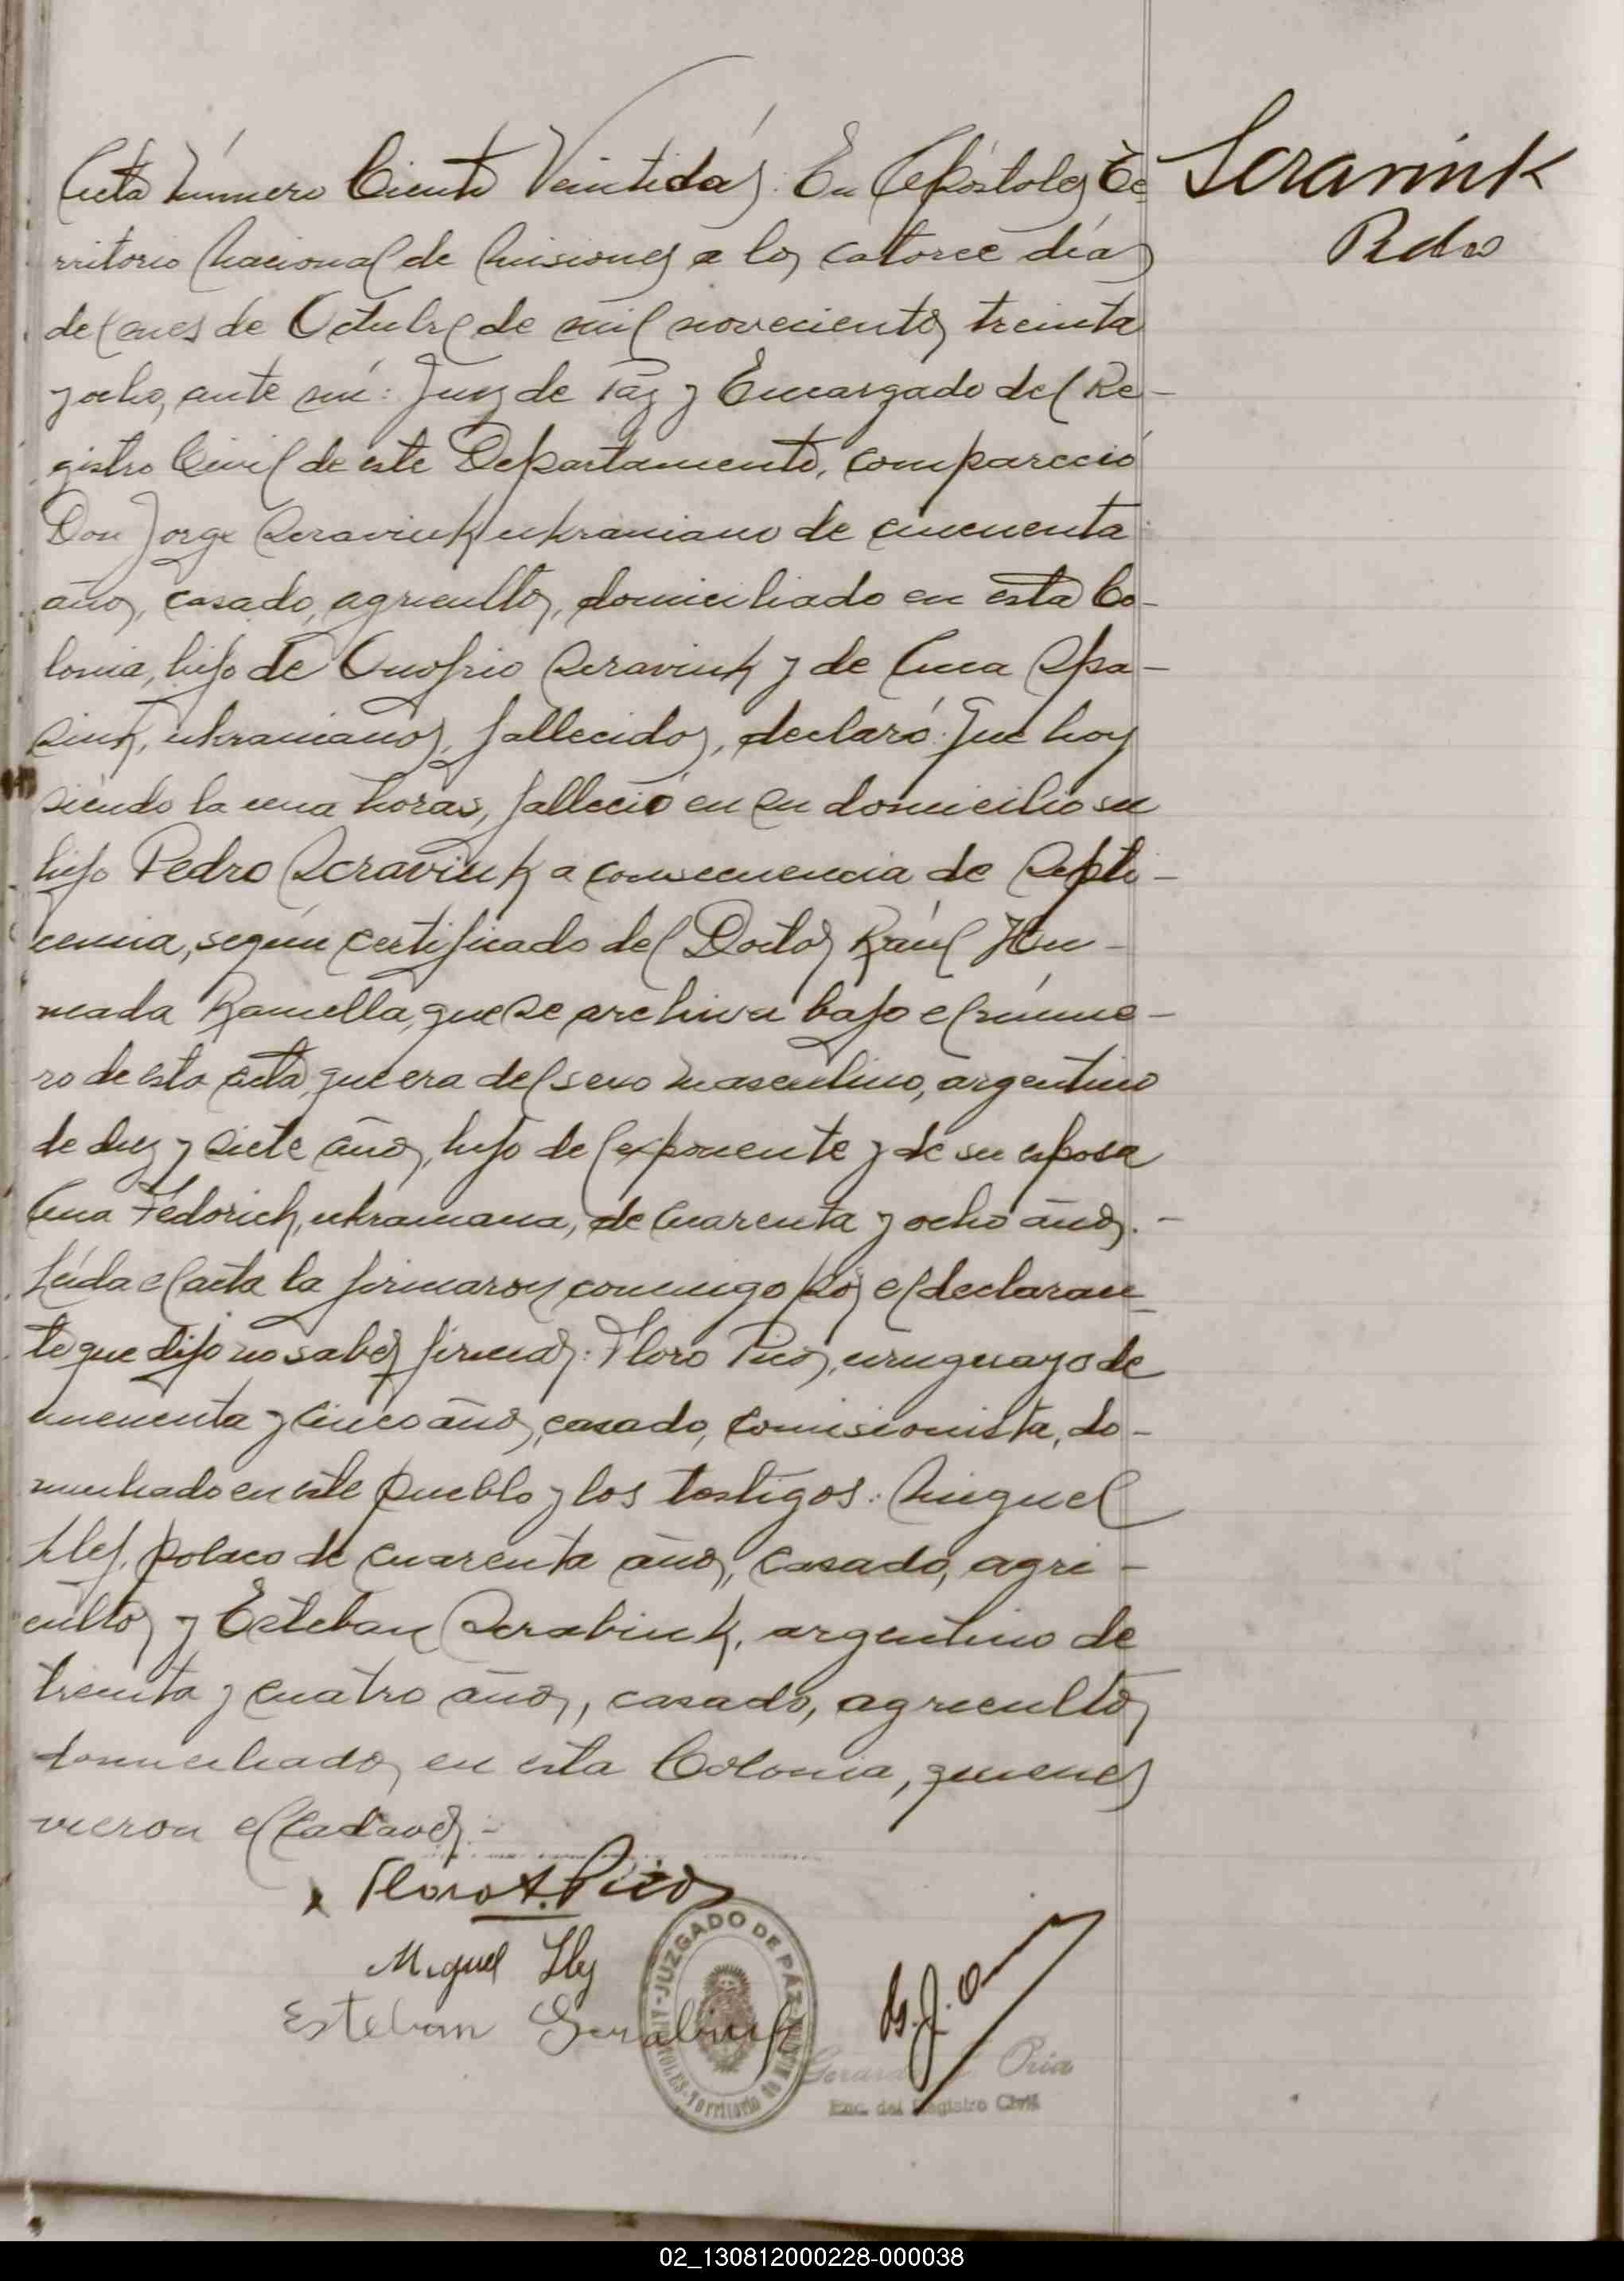 Acta número Ciento Veintidós: En Apóstoles Te-
rritorio Nacional de Misiones a los catorce días
del mes de Octubre de mil novecientos treinta
y ocho, ante mí: Juez de Paz y Encargado del Re-
gistro Civil de este Departamento, compareció
Don Jorge Seraviuk ukraniano de cincuenta
años, casado, agricultor, domiciliado en esta Co-
lonia, hijo de Onofrio Seraviuk y de Ana Spa-
siuk, ukranianos, fallecidos, declaró: Que hoy
siendo la una horas, falleció en su domicilio su
hijo Pedro Seraviuk a consecuencia de Septi-
cemia, según certificado del Doctor Raúl
Ramella, que se archiva bajo el núme-
ro de esta acta, que era del sexo masculino, argentino
de diez y siete años, hijo del exponente y de su esposa
Ana Fedorich, ukraniana, de cuarenta y ocho años. -
Leída el acta la firmaron conmigo por el declaran-
te que dijo no saber firmar: Floro Picos, uruguayo de
cincuenta y cinco años, casado, comisionista, do-
miciliado en este pueblo y los testigos: Miguel
polaco de cuarenta años, casado, agri-
cultor y Esteban Serabiuk, argentino de
treinta y cuatro años, casado, agricultor,
domiciliados en esta Colonia, quienes
vieron el cadaver. -
Seraviuk
Pedro
Floro A. Picos
Miguel
Esteban Serabiuk
JUZGADO DE PAZ
APOSTOLES - Territorio de Misiones
Enc. del Registro Civil
02_130812000228-000038